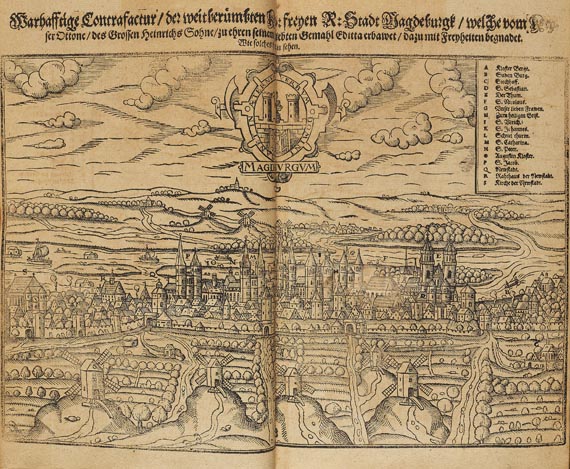 Warhafftige Contrafactur / der weitberümbten freyen R: Stadt Magdeburgk / welche vom
ser Ottone / des Grossen Heinrichs Sohne / zu ehren seinem liebten Gemahl Editta erbawet / dazu mit Freyheiten begnadet.
Wie solches zu sehen.
MAGDBVRGVM
A Kloster Berge.
B Suden Burg.
C
D S. Sebastian.
E Der Thum.
F S. Nicolaus.
G Unser lieben Frawen.
H Zum heiligen Geist.
I S. Ulrich.
K S. Johannes.
L
M S. Catharina.
N S. Peter.
O Augustin Kloster.
P S. Jacob.
Q Newstadt.
R Rahthaus der Newstadt.
S Kirche der Newstadt.